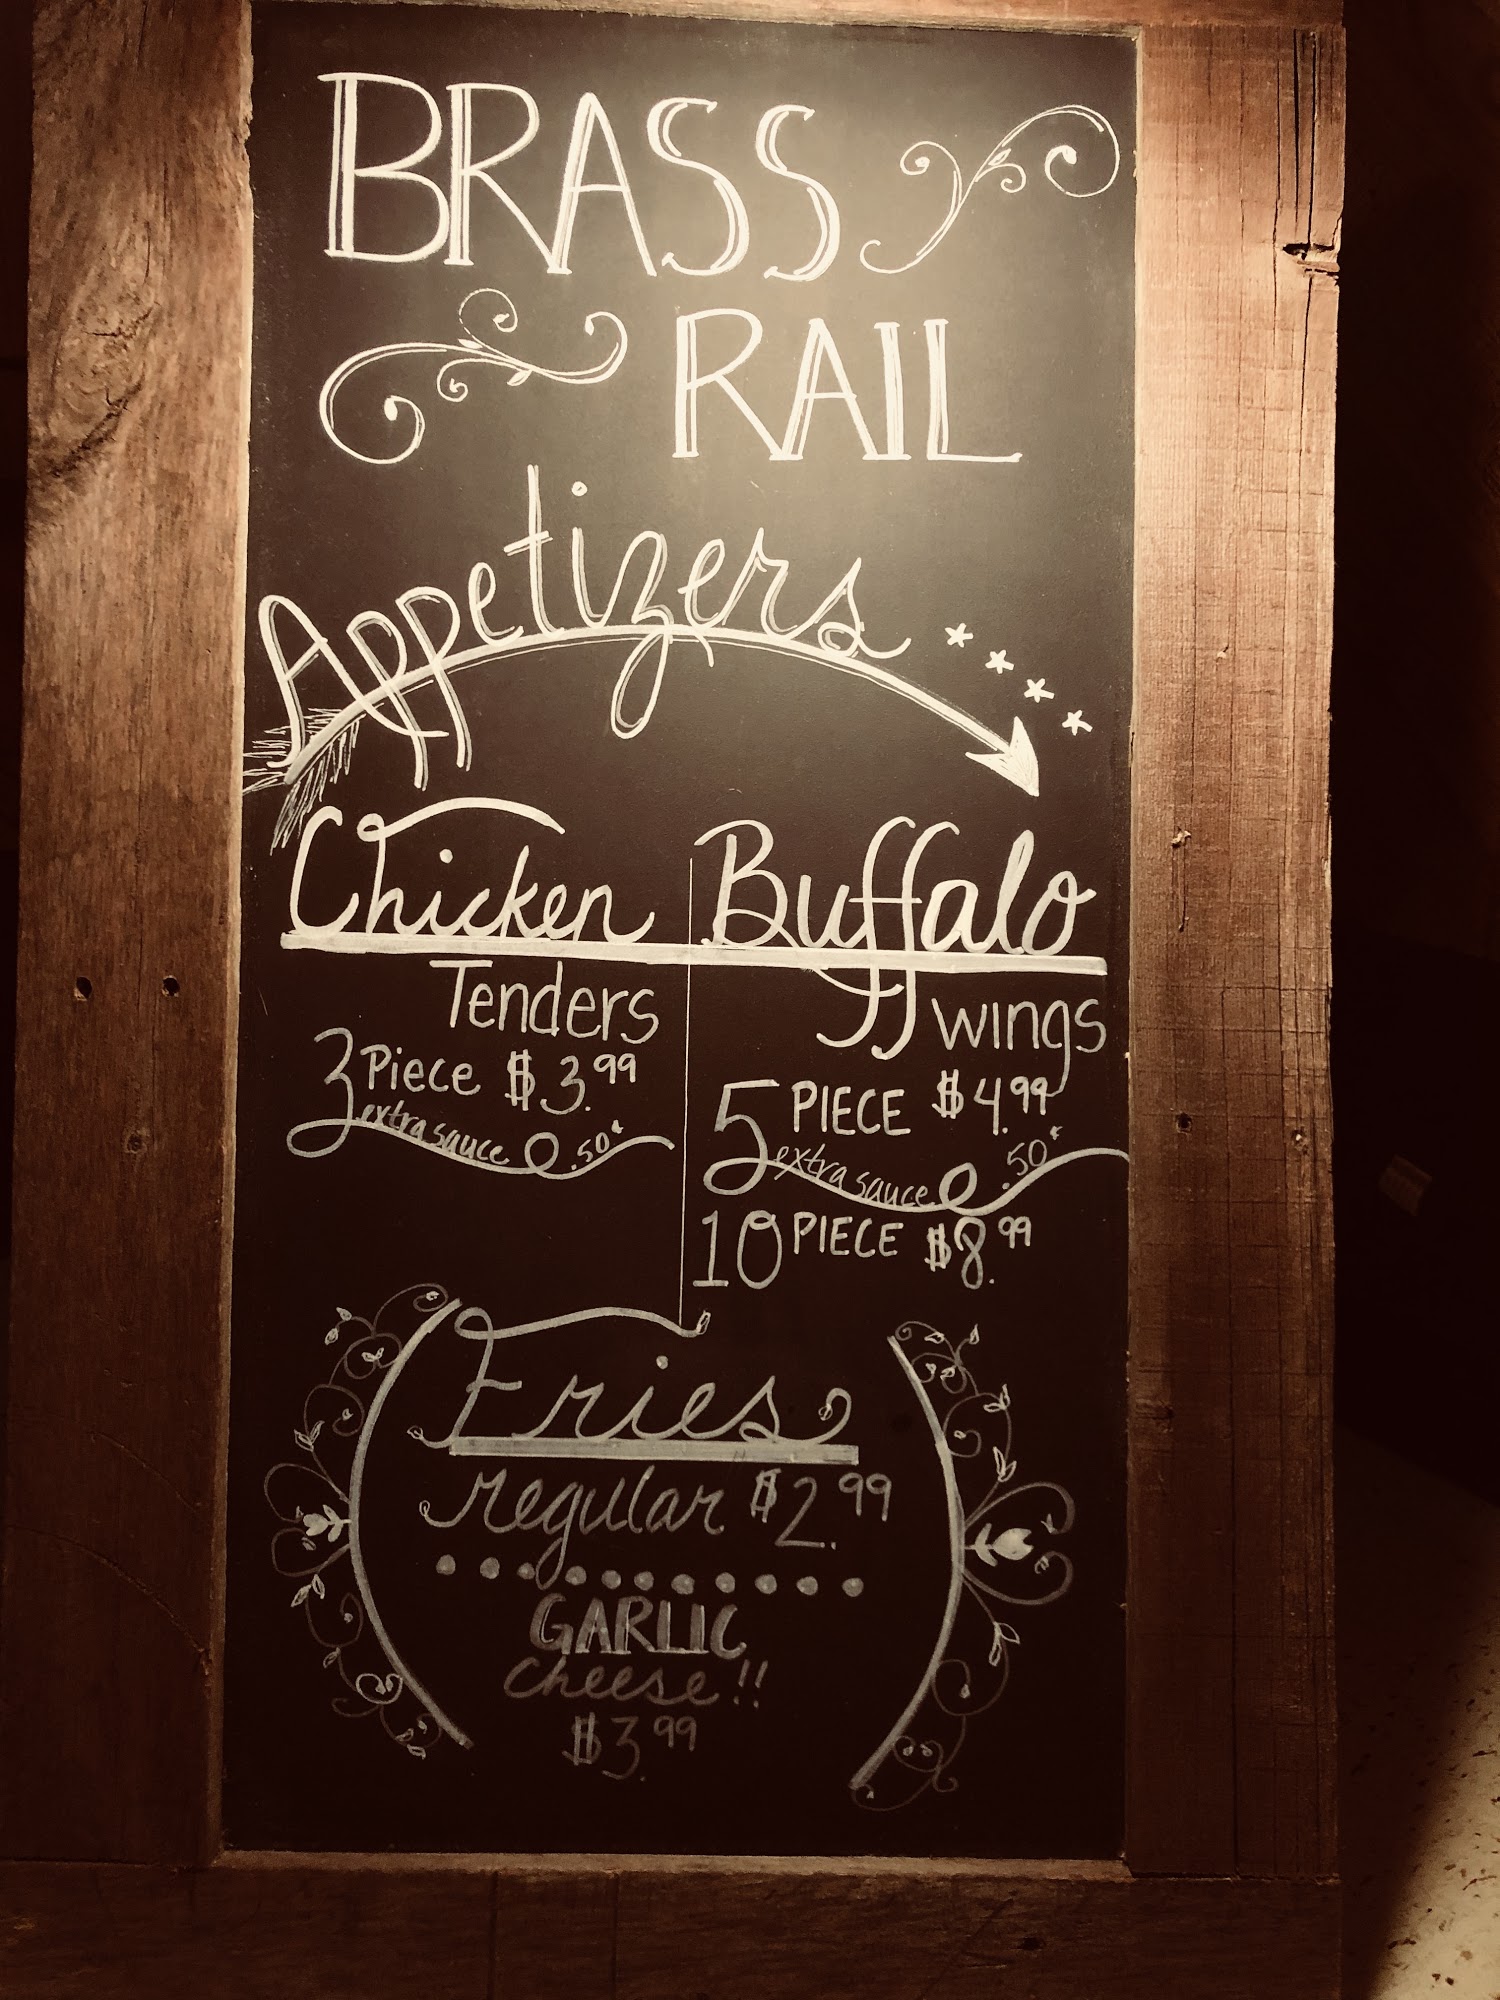 BRASS
RAIL
Appetizers
Chicken
Tenders
3 Piece $3.99
extra sauce .50¢
Buffalo
wings
5 PIECE $4.99
extra sauce .50¢
10 PIECE $8.99
Fries
regular $2.99
GARLIC
cheese!!
$3.99